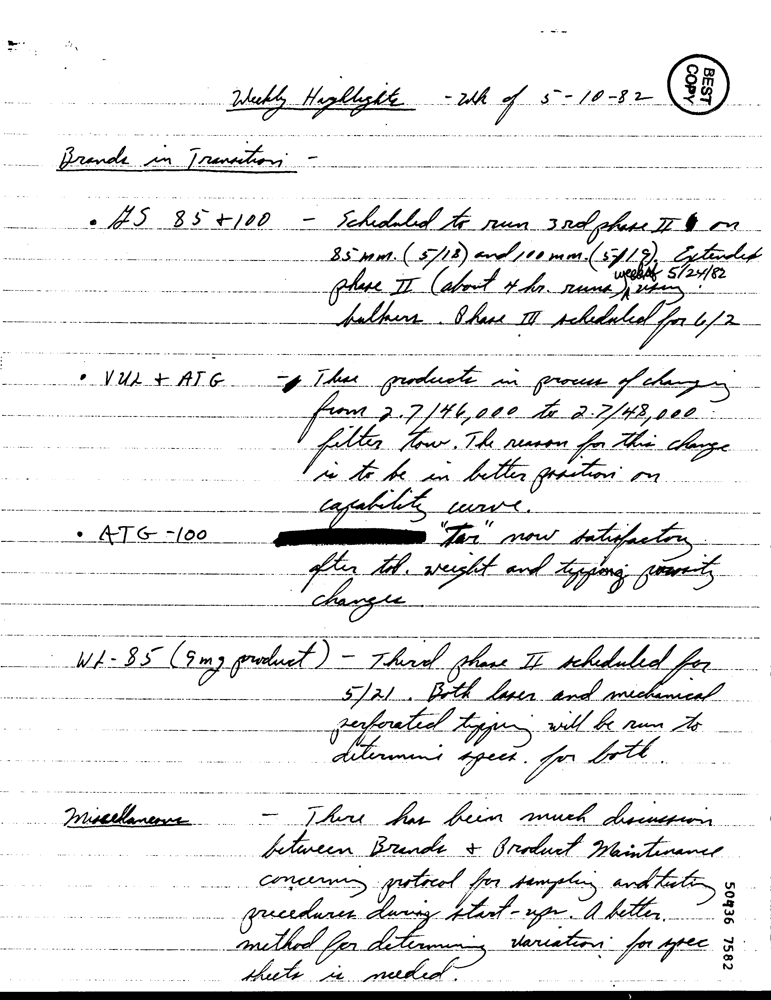 BEST
COPY
Weekly Highlights - Wk of 5-10-82
Brands in Transition -
• 85 + 100 - Scheduled to run 3rd phase II on
85 mm. (5/18) and 100 mm. (5/19). Extended
phase II (about 4 hr. runs) week of 5/24/82 using
. Phase III scheduled for 6/2
• VUL + ATG - These products in process of changing
from 2.7/46,000 to 2.7/48,000
filter tow. The reason for this change
is to be in better position on
capability curve.
• ATG -100 "Tar" now satisfactory
after tob. weight and tipping porosity
changes
-85 (9 mg product) - Third phase II scheduled for
5/21. Both laser and mechanical
perforated tipping will be run to
determine specs. for both.
Miscellaneous - There has been much discussion
between Brands + Product Maintenance
concerning protocol for sampling and testing
procedures during start-ups. A better
method for determining variations for spec
sheets is needed.
50936 7582